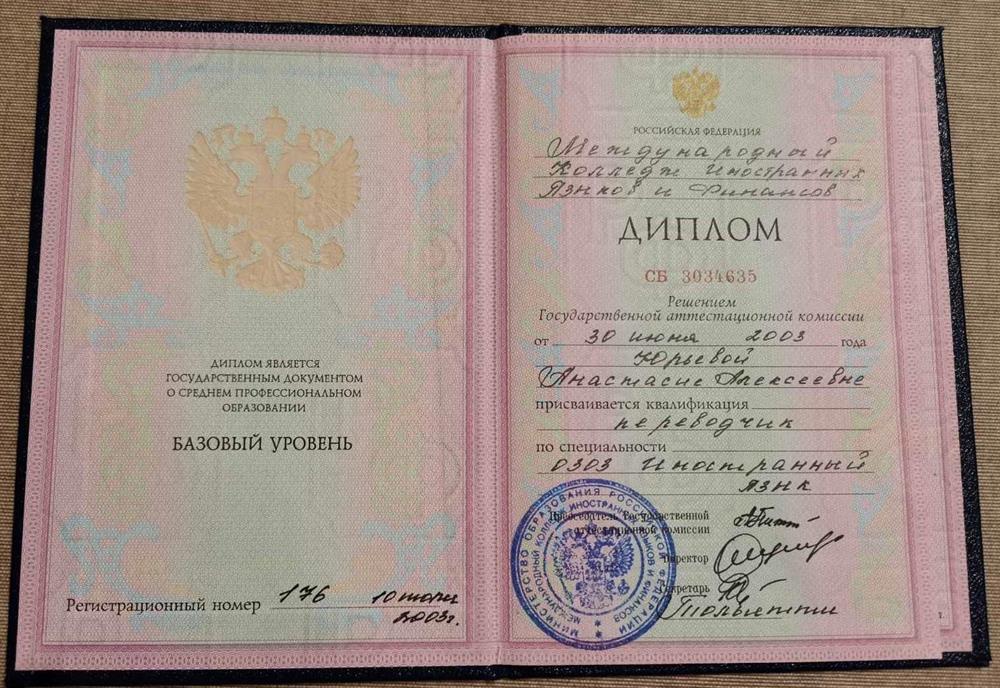 ДИПЛОМ ЯВЛЯЕТСЯ
ГОСУДАРСТВЕННЫМ ДОКУМЕНТОМ
О СРЕДНЕМ ПРОФЕССИОНАЛЬНОМ
ОБРАЗОВАНИИ
БАЗОВЫЙ УРОВЕНЬ
Регистрационный номер 176 10 июля
2003г.
РОССИЙСКАЯ ФЕДЕРАЦИЯ
Международный
Колледж Иностранных
Языков и Финансов
ДИПЛОМ
СБ 3034635
Решением
Государственной аттестационной комиссии
от 30 июня 2003 года
Юрьевой
Анастасие Алексеевне
присваивается квалификация
переводчик
по специальности
0303 Иностранный
язык
Председатель Государственной
аттестационной комиссии
Директор
Секретарь
Тольятти
МИНИСТЕРСТВО ОБРАЗОВАНИЯ РОССИЙСКОЙ ФЕДЕРАЦИИ
МЕЖДУНАРОДНЫЙ КОЛЛЕДЖ ИНОСТРАННЫХ ЯЗЫКОВ И ФИНАНСОВ